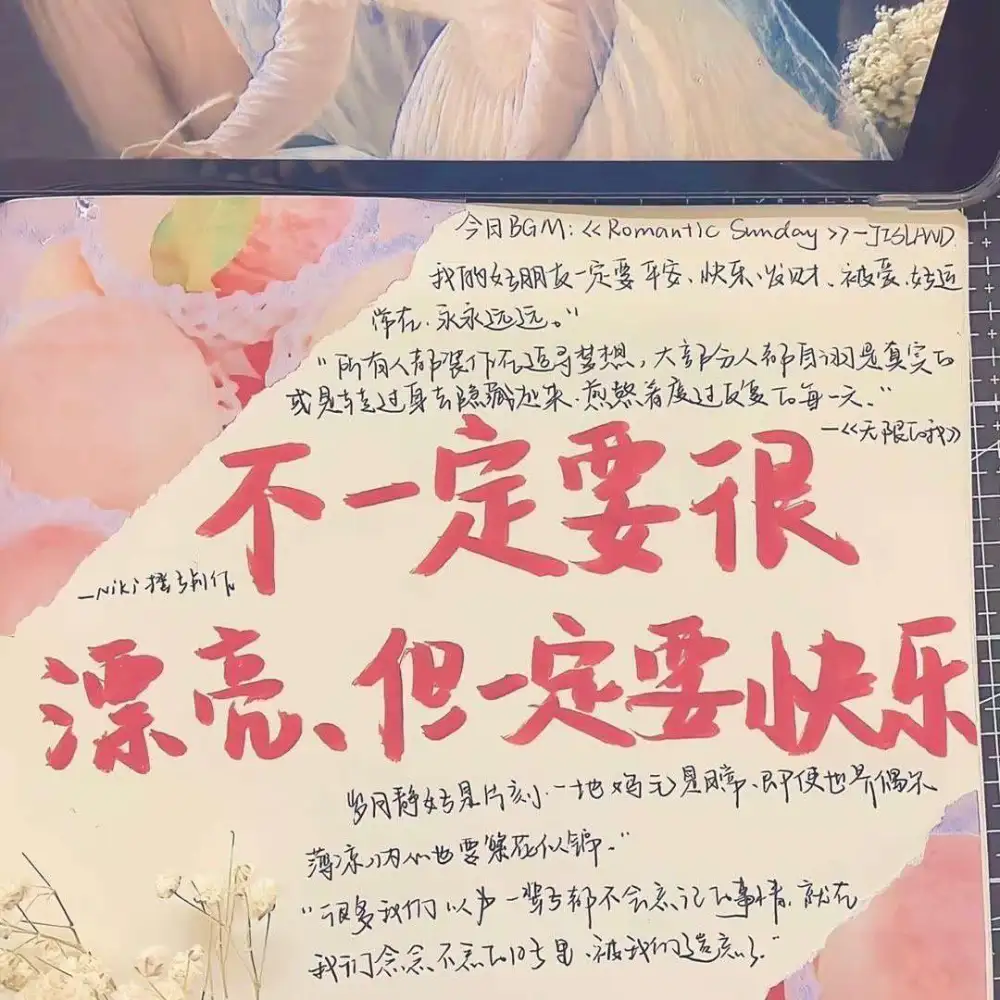 今日BGM:《Romantic Sunday》-JISLAND
我的好朋友一定要平安、快乐、发财、被爱、好运
常在、永永远远。"
"所有人都装作在追寻梦想,大部分人都自诩是真实的
或是转过身去隐藏起来,煎熬着度过反复的每一天。"
—《无限的我》
不一定要很
—Niki 摇与创作
漂亮、但一定要快乐
岁月静好是片刻,一地鸡毛是日常,即使世界偶尔
薄凉,内心也要繁花似锦。"
"很多我们以为一辈子都不会忘记的事情,就在
我们念念不忘的日子里,被我们遗忘了。"